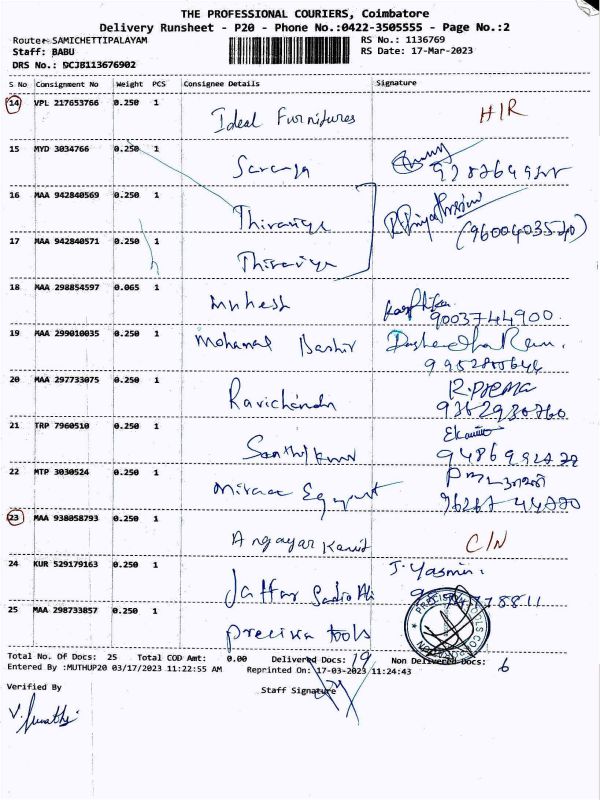 THE PROFESSIONAL COURIERS, Coimbatore
Delivery Runsheet - P20 - Phone No.:0422-3505555 - Page No.:2
Route: SAMICHETTIPALAYAM RS No.: 1136769
Staff: BABU RS Date: 17-Mar-2023
DRS No.: DCJB113676902
S No Consignment No Weight PCS Consignee Details Signature
14 VPL 217653766 0.250 1
Ideal Furnitures H/R
15 MYD 3034766 0.250 1
Saranya
16 MAA 942840569 0.250 1
Thiraviya
(9600403520)
17 MAA 942840571 0.250 1
Thiraviya
18 MAA 298854597 0.065 1
Mukesh
9003744900.
19 MAA 299010035 0.250 1
Mohamed Bashir
20 MAA 297733075 0.250 1
Ravichandn R.prema
9362930760
21 TRP 7960510 0.250 1
22 MTP 3030524 0.250 1
23 MAA 938058793 0.250 1
C/N
24 KUR 529179163 0.250 1
Jaffar J. Yasmin.
25 MAA 298733857 0.250 1
tools
Total No. Of Docs: 25 Total COD Amt: 0.00 Delivered Docs: 19 Non Delivered Docs: 6
Entered By :MUTHUP20 03/17/2023 11:22:55 AM Reprinted On: 17-03-2023 11:24:43
Verified By Staff Signature